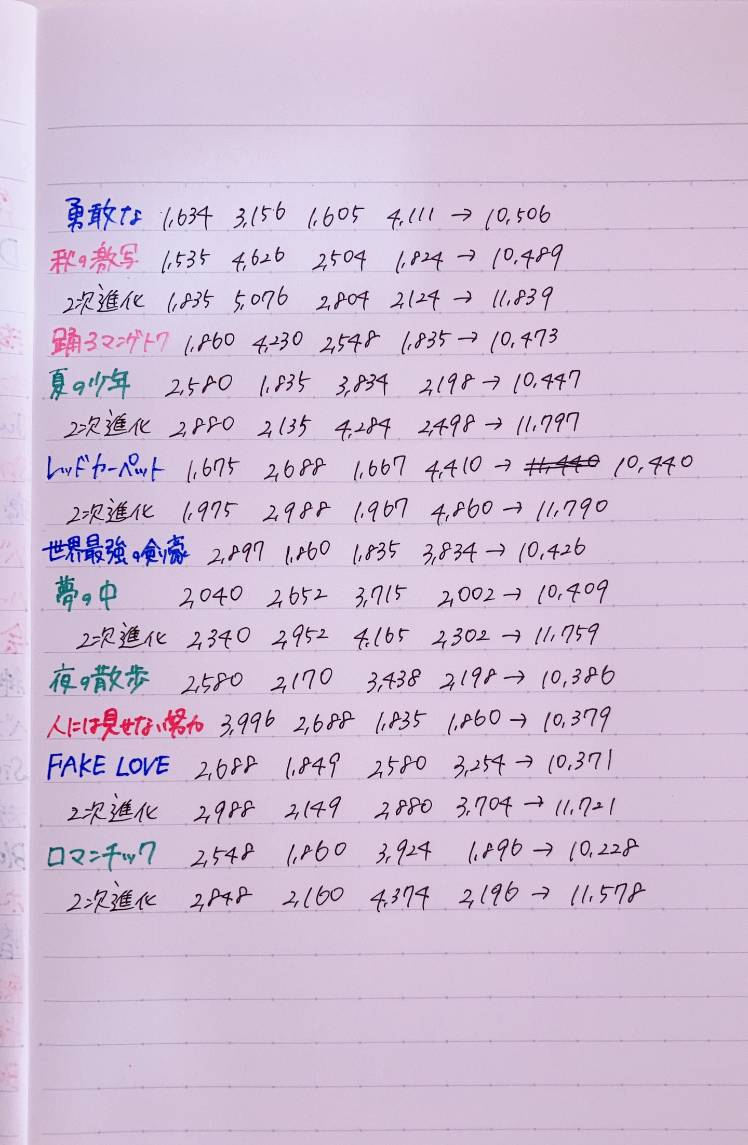 勇敢な 1,634 3,156 1,605 4,111 → 10,506
秋の激写 1,535 4,626 2,504 1,824 → 10,489
2次進化 1,835 5,076 2,804 2,124 → 11,839
踊るマンゲトク 1,860 4,230 2,548 1,835 → 10,473
夏の少年 2,580 1,835 3,834 2,198 → 10,447
2次進化 2,880 2,135 4,284 2,498 → 11,797
レッドカーペット 1,675 2,688 1,667 4,410 → 11,440 10,440
2次進化 1,975 2,988 1,967 4,860 → 11,790
世界最強の剣豪 2,897 1,860 1,835 3,834 → 10,426
夢の中 2,040 2,652 3,715 2,002 → 10,409
2次進化 2,340 2,952 4,165 2,302 → 11,759
夜の散歩 2,580 2,170 3,438 2,198 → 10,386
人には見せない努力 3,996 2,688 1,835 1,860 → 10,379
FAKE LOVE 2,688 1,849 2,580 3,254 → 10,371
2次進化 2,988 2,149 2,880 3,704 → 11,721
ロマンチック 2,548 1,860 3,924 1,896 → 10,228
2次進化 2,848 2,160 4,374 2,196 → 11,578